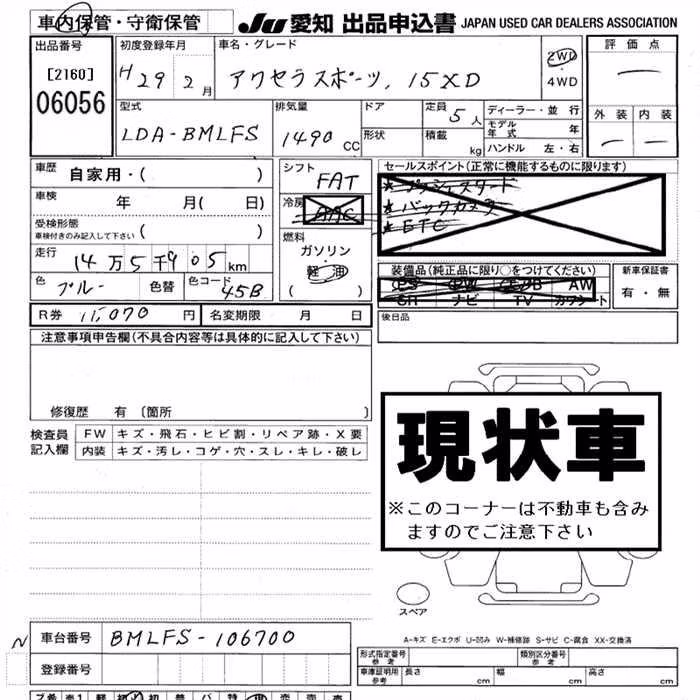 車内保管・守衛保管
JU 愛知 出品申込書 JAPAN USED CAR DEALERS ASSOCIATION
出品番号 初度登録年月 車名・グレード 評価点
[2160] H29 2月 アクセラスポーツ、15XD 2WD
06056 4WD
型式 排気量 ドア 定員 5人 ディーラー・並行 外装 内装
LDA-BMLFS 1490 CC 形状 積載 kg モデル年式 年
ハンドル 左・右
車歴 自家用・( )
車検 年 月( 日)
受検形態
車検付きのみ記入して下さい ( )
走行 14万5千905km
色 ブルー 色替 色コード 45B
シフト FAT
冷房 AAC
燃料
ガソリン
軽油
( )
セールスポイント(正常に機能するものに限ります)
★プッシュスタート
★バックカメラ
★ETC
装備品(純正品に限り○をつけてください) 新車保証書
PS PW AW 有・無
SR ナビ TV カワシート
R券 11,070円 名変期限 月 日 後日品
注意事項申告欄(不具合内容等は具体的に記入して下さい)
修復歴 有〔箇所 〕
検査員 FW キズ・飛石・ヒビ割・リペア跡・X要
記入欄 内装 キズ・汚レ・コゲ・穴・スレ・キレ・破レ
現状車
※このコーナーは不動車も含み
ますのでご注意下さい
スペア
A-キズ E-エクボ U-凹み W-補修跡 S-サビ C-腐食 XX-交換済
N 車台番号 BMLFS-106700
登録番号
形式指定番号 参考 類別区分番号 参考
車庫証明用 参考 長さ cm 幅 cm 高さ cm